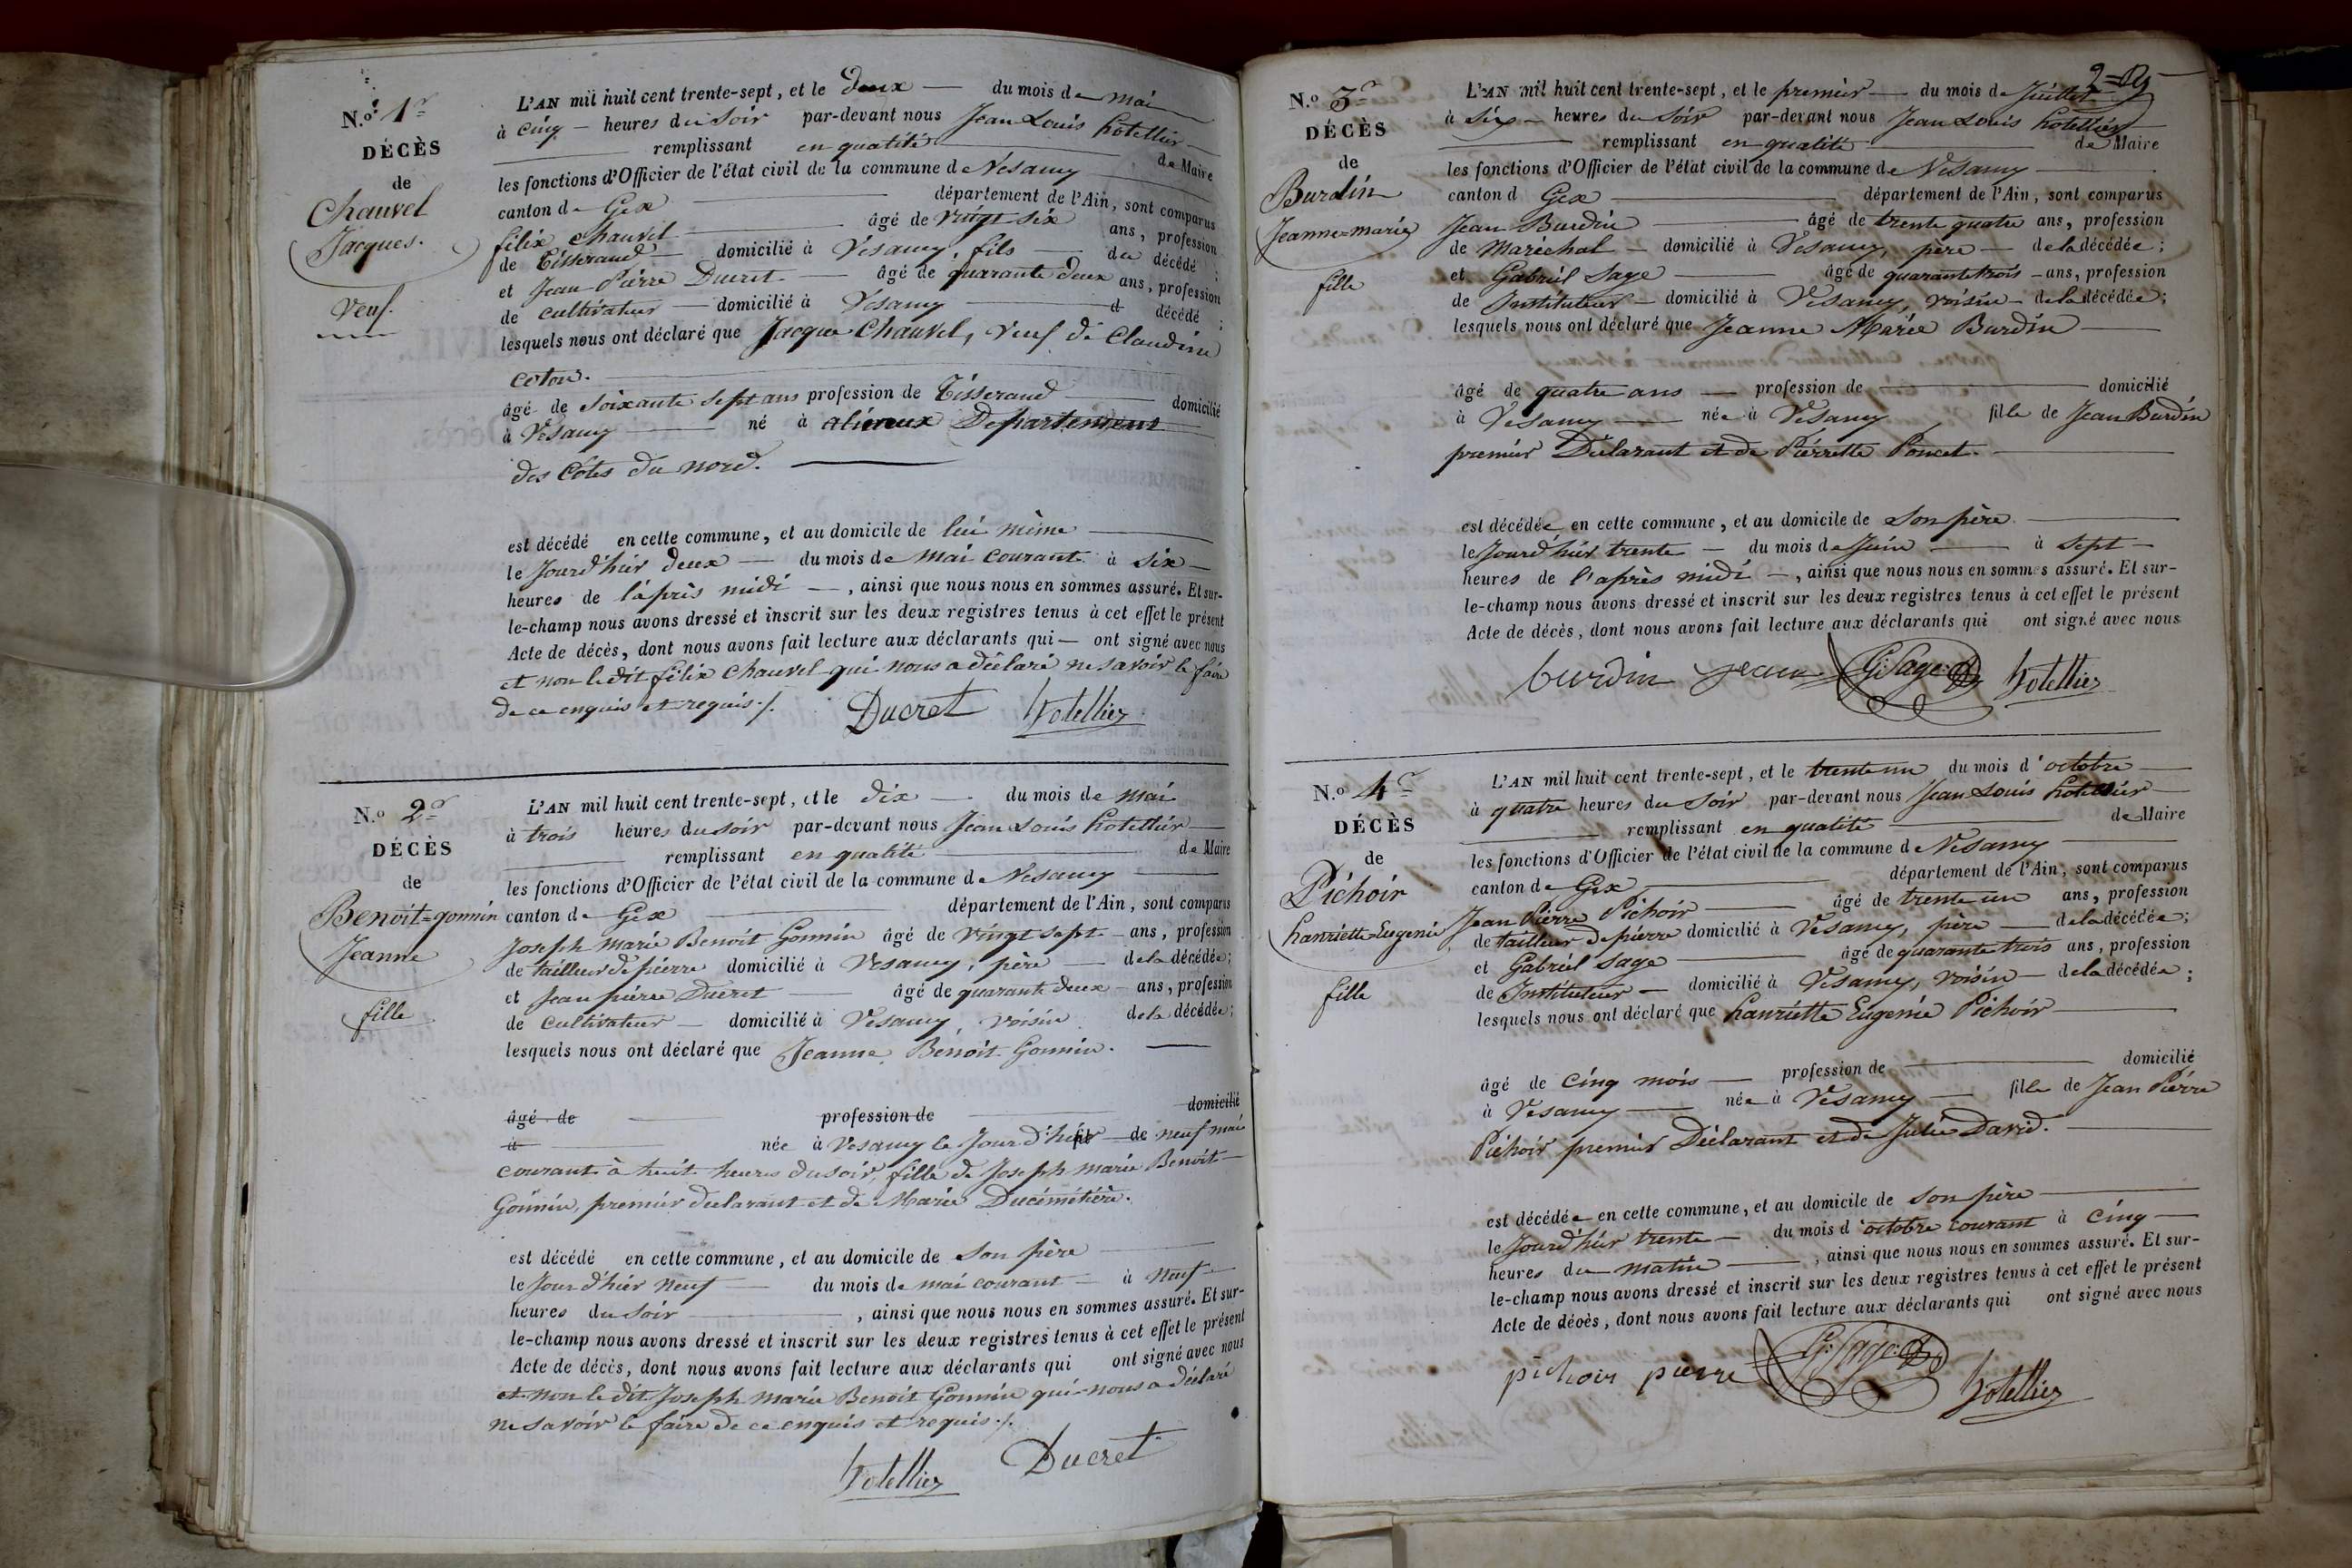 N.º 1er
DÉCÈS
de
Chauvel
Jacques.
Veuf.
L'AN mil huit cent trente-sept, et le deux — du mois de mai
à cinq — heures du soir par-devant nous Jean Louis hotellier
remplissant en qualité de Maire
les fonctions d'Officier de l'état civil de la commune de Vésancy
canton de Gex département de l'Ain, sont comparus
félix chauvel âgé de vingt six ans, profession
de Tisserand — domicilié à Vésancy, fils du décédé ;
et Jean Pierre Ducret — âgé de quarante deux ans, profession
de cultivateur — domicilié à Vésancy — d décédé ;
lesquels nous ont déclaré que Jacque Chauvel, veuf de Claudine
coton.
âgé de soixante sept ans profession de Tisserand — domicilié
à Vésancy — né à Departement
des Côtes du nord.
est décédé en cette commune, et au domicile de lui même
le Jourd'hier deux — du mois de mai courant à six —
heures de l'après midi —, ainsi que nous nous en sommes assuré. Et sur-
le-champ nous avons dressé et inscrit sur les deux registres tenus à cet effet le présent
Acte de décès, dont nous avons fait lecture aux déclarants qui — ont signé avec nous
et non le dit félix chauvel qui nous a déclaré ne savoir le faire
de ce enquis et requis ./.
Ducret hotellier
N.º 2e
DÉCÈS
de
Benoit=gonnin
Jeanne
fille
L'AN mil huit cent trente-sept, et le dix — du mois de mai
à trois heures du soir par-devant nous Jean Louis hotellier
remplissant en qualité de Maire
les fonctions d'Officier de l'état civil de la commune de Vesancy
canton de Gex département de l'Ain, sont comparus
Joseph marie Benoit Gonnin âgé de vingt sept — ans, profession
de tailleur de pierre domicilié à Vesancy, père — de la décédée ;
et Jean pierre Ducret — âgé de quarante deux — ans, profession
de cultivateur — domicilié à Vesancy, voisin de la décédée ;
lesquels nous ont déclaré que Jeanne Benoit Gonnin. —
âgé de — profession de — domicilié
à née à Vesancy le Jour d'hier de neuf mai
courant à huit heures du soir, fille de Joseph marie Benoit
Gonnin, premier declarant et de Marie Ducimétière.
est décédé en cette commune, et au domicile de son père
le Jour d'hier neuf — du mois de mai courant — à neuf
heures du soir —, ainsi que nous nous en sommes assuré. Et sur-
le-champ nous avons dressé et inscrit sur les deux registres tenus à cet effet le présent
Acte de décès, dont nous avons fait lecture aux déclarants qui ont signé avec nous
et non le dit Joseph marie Benoit Gonnin qui nous a déclaré
ne savoir le faire de ce enquis et requis ./.
hotellier Ducret
N.º 3e
DÉCÈS
de
Burdin
Jeanne=marie
fille
L'AN mil huit cent trente-sept, et le premier — du mois de Juillet
à six — heures du soir par-devant nous Jean Louis hotellier
remplissant en qualité de Maire
les fonctions d'Officier de l'état civil de la commune de Vesancy
canton d Gex département de l'Ain, sont comparus
Jean Burdin — âgé de trente quatre ans, profession
de Maréchal — domicilié à Vesancy, père — de la décédée ;
et Gabriel Sage — âgé de quarante trois — ans, profession
de Instituteur — domicilié à Vesancy, voisin — de la décédée ;
lesquels nous ont déclaré que Jeanne Marie Burdin
âgé de quatre ans — profession de — domicilié
à Vesancy — née à Vesancy fille de Jean Burdin
premier Déclarant et de Pierrette Poncet.
est décédée en cette commune, et au domicile de son père.
le Jourd'hier trente — du mois de Juin — à sept —
heures de l'après midi —, ainsi que nous nous en sommes assuré. Et sur-
le-champ nous avons dressé et inscrit sur les deux registres tenus à cet effet le présent
Acte de décès, dont nous avons fait lecture aux déclarants qui ont signé avec nous
burdin jean G: Sage hotellier
N.º 4e
DÉCÈS
de
Pichoir
hanriette Eugenie
fille
L'AN mil huit cent trente-sept, et le trente un du mois d'octobre
à quatre heures du soir par-devant nous Jean Louis hotellier
remplissant en qualité de Maire
les fonctions d'Officier de l'état civil de la commune de Vesancy
canton de Gex département de l'Ain, sont comparus
Jean Pierre Pichoir — âgé de trente un ans, profession
de tailleur de pierre domicilié à Vesancy, père — de la décédée ;
et Gabriel Sage — âgé de quarante trois ans, profession
de Instituteur — domicilié à Vesancy, voisin — de la décédée ;
lesquels nous ont déclaré que hanriette Eugenie Pichoir
âgé de cinq mois — profession de — domicilié
à Vesancy — née à Vesancy — fille de Jean Pierre
Pichoir premier Déclarant et de Julie David.
est décédée en cette commune, et au domicile de son père
le Jourd'hier trente — du mois d'octobre courant à cinq —
heures du matin —, ainsi que nous nous en sommes assuré. Et sur-
le-champ nous avons dressé et inscrit sur les deux registres tenus à cet effet le présent
Acte de décès, dont nous avons fait lecture aux déclarants qui ont signé avec nous
pichoir pierre G: Sage hotellier